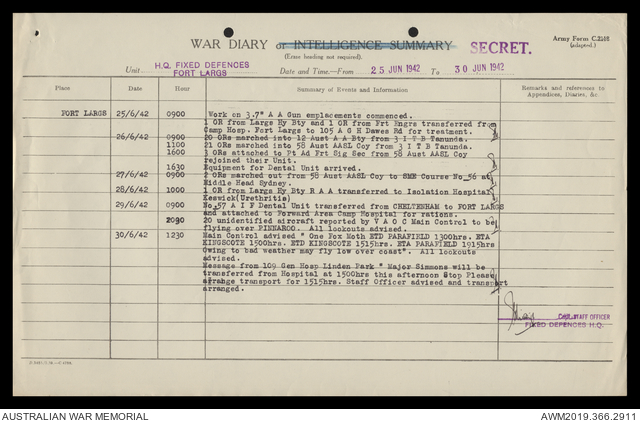 Army Form C.2118
(adapted.)
WAR DIARY or INTELLIGENCE SUMMARY
SECRET.
(Erase heading not required).
Unit H.Q. FIXED DEFENCES
FORT LARGS
Date and Time—From 25 JUN 1942 To 30 JUN 1942
Place Date Hour Summary of Events and Information Remarks and references to
Appendices, Diaries, &c
FORT LARGS 25/6/42 0900 Work on 3.7" A A Gun emplacements commenced.
1 OR from Largs Hy Bty and 1 OR from Frt Engrs transferred from
Camp Hosp. Fort Largs to 105 A G H Dawes Rd for treatment.
26/6/42 0900 20 ORs marched into 12 Aust A A Bty from 3 I T B Tanunda.
1100 21 ORs marched into 58 Aust AASL Coy from 3 I T B Tanunda.
1600 3 ORs attached to Pt Ad Frt Sig Sec from 58 Aust AASL Coy
rejoined their Unit.
1630 Equipment for Dental Unit arrived.
27/6/42 0900 2 ORs marched out from 58 Aust AASL Coy to SME Course No 56 at
Middle Head Sydney.
28/6/42 1000 1 OR from Largs Hy Bty R A A transferred to Isolation Hospital
Keswick(Urethritis)
29/6/42 0900 No 57 A I F Dental Unit transferred from CHELTENHAM to FORT LARGS
and attached to Forward Area Camp Hospital for rations.
2030 20 unidentified aircraft reported by V A O C Main Control to be
flying over PINNAROO. All lookouts advised.
30/6/42 1230 Main Control advised " One Fox Moth ETD PARAFIELD 1300hrs. ETA
KINGSCOTE 1500hrs. ETD KINGSCOTE 1515hrs. ETA PARAFIELD 1915hrs
Owing to bad weather may fly low over coast". All lookouts
advised.
Message from 109 Gen Hosp Linden Park " Major Simmons will be
transferred from Hospital at 1500hrs this afternoon Stop Please
arrange transport for 1515hrs. Staff Officer advised and transport
arranged.
STAFF OFFICER
FIXED DEFENCES H.Q.
AUSTRALIAN WAR MEMORIAL
AWM2019.366.2911